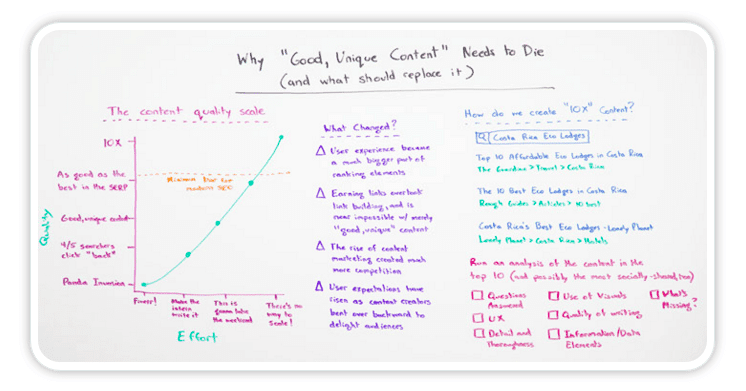 Why "Good, Unique Content" Needs to Die
(and what should replace it)
The content quality scale
10X
As good as the
best in the SERP
Minimum bar for
modern SEO
Good, unique content
4/5 searchers
click "back"
Panda Invasion
Quality
Fiverr!
Make the
intern
write it
This is
gonna take
the weekend
There's no
way to
scale!
Effort
What Changed?
User experience became
a much bigger part of
ranking elements
Earning links overtook
link building, and is
near impossible w/ merely
"good, unique" content
The rise of content
marketing created much
more competition
User expectations have
risen as content creators
bent over backward to
delight audiences
How do we create "10X" Content?
Costa Rica Eco Lodges
Top 10 Affordable Eco Lodges in Costa Rica
The Guardian > Travel > Costa Rica
The 10 Best Eco Lodges in Costa Rica
Rough Guides > Articles > 10 best
Costa Rica's Best Eco Lodges - Lonely Planet
Lonely Planet > Costa Rica > Hotels
Run an analysis of the content in the
top 10 (and possibly the most socially-shared, too)
Questions
Answered
Use of Visuals
What's
Missing?
UX
Quality of writing
Detail and
Thoroughness
Information/Data
Elements